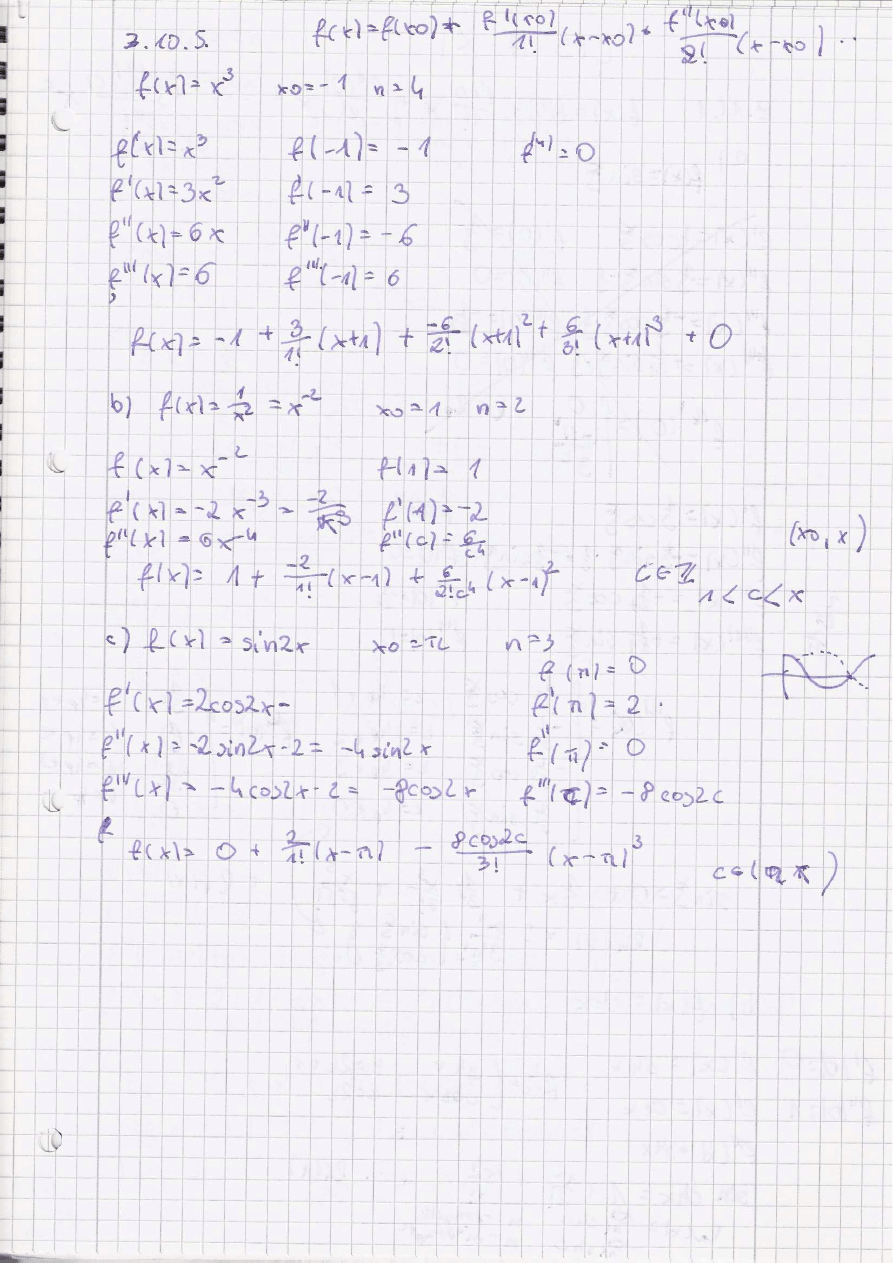 3.10.5. f(x)=f(x0)+ f'(x0)/1! (x-x0)+ f''(x0)/2! (x-x0) ..
f(x)=x³ x0=-1 n=4
f(x)=x³ f(-1)= -1 f⁽⁴⁾=0
f'(x)=3x² f'(-1)= 3
f''(x)=6x f''(-1)=-6
f'''(x)=6 f'''(-1)=6
f(x)= -1 + 3/1! (x+1) + -6/2! (x+1)² + 6/3! (x+1)³ + 0
b) f(x)= 1/x² = x⁻² x0=1 n=2
f(x)= x⁻² f(1)= 1
f'(x)= -2 x⁻³ = -2/x³ f'(1)=-2
f''(x)= 6x⁻⁴ f''(c)= 6/c⁴ (x0, x)
f(x)= 1 + -2/1! (x-1) + 6/2!c⁴ (x-1)² c∈ℤ 1<c<x
c) f(x)= sin2x x0=π n=3
f(π)= 0
f'(x)=2cos2x- f'(π)= 2
f''(x)= -2sin2x·2= -4sin2x f''(π)= 0
f'''(x)= -4cos2x·2= -8cos2x f'''(c)= -8cos2c
f(x)= 0 + 2/1! (x-π) - 8cos2c/3! (x-π)³ c∈(π x)